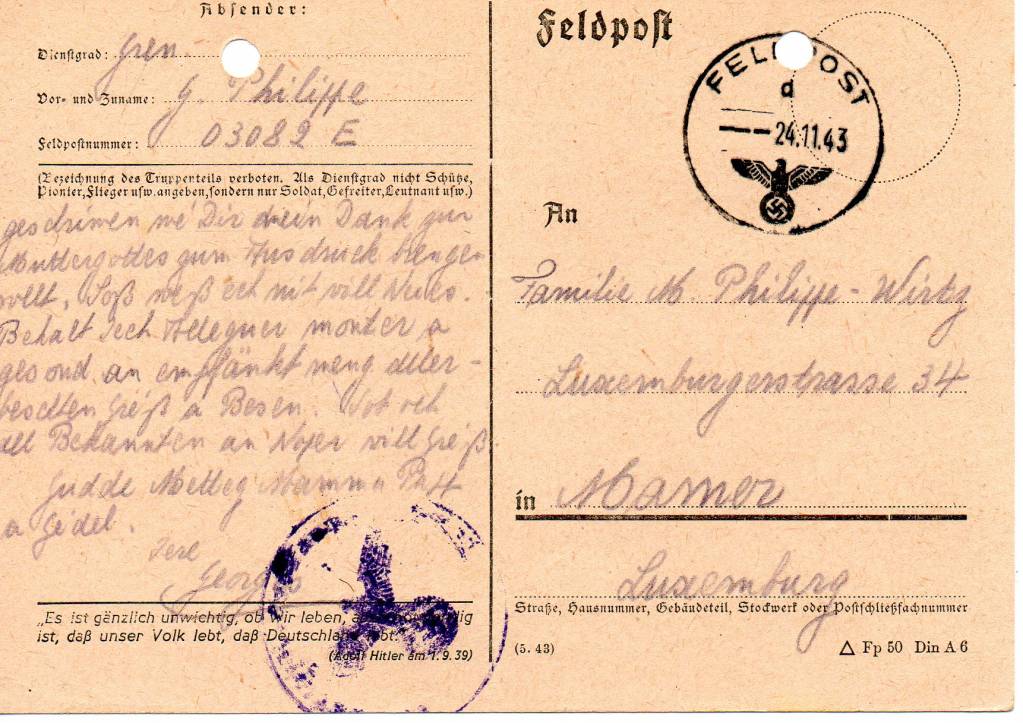 Absender:
Dienstgrad: Gren.
Vor- und Zuname: G. Philippe
Feldpostnummer: 03082 E
(Bezeichnung des Truppenteils verboten. Als Dienstgrad nicht Schütze,
Pionier, Flieger usw. angeben, sondern nur Soldat, Gefreiter, Leutnant usw.)
geschriwen we' Dir mein Dank zur
Muttergottes zum Ausdruck brengen
wollt. Soß weß ech nit vill Neies.
Behalt Iech Alleguer monter a
gesond an empfänkt meng aller-
beschten Gre'ß a Besen. Sot och
all Bekannten an Noper vill Gre'ß
Gudde Metteg Mamma
a Gidel.
Iere
Georges
„Es ist gänzlich unwichtig, ob wir leben,
ist, daß unser Volk lebt, daß Deutschland lebt."
(Adolf Hitler am 1.9.39)
Feldpost
FELDPOST
d
24.11.43
An
Familie M. Philippe-Wirtz
Luxemburgerstrasse 34
in Mamer
Luxemburg
Straße, Hausnummer, Gebäudeteil, Stockwerk oder Postschließfachnummer
(5. 43)
△ Fp 50 Din A 6